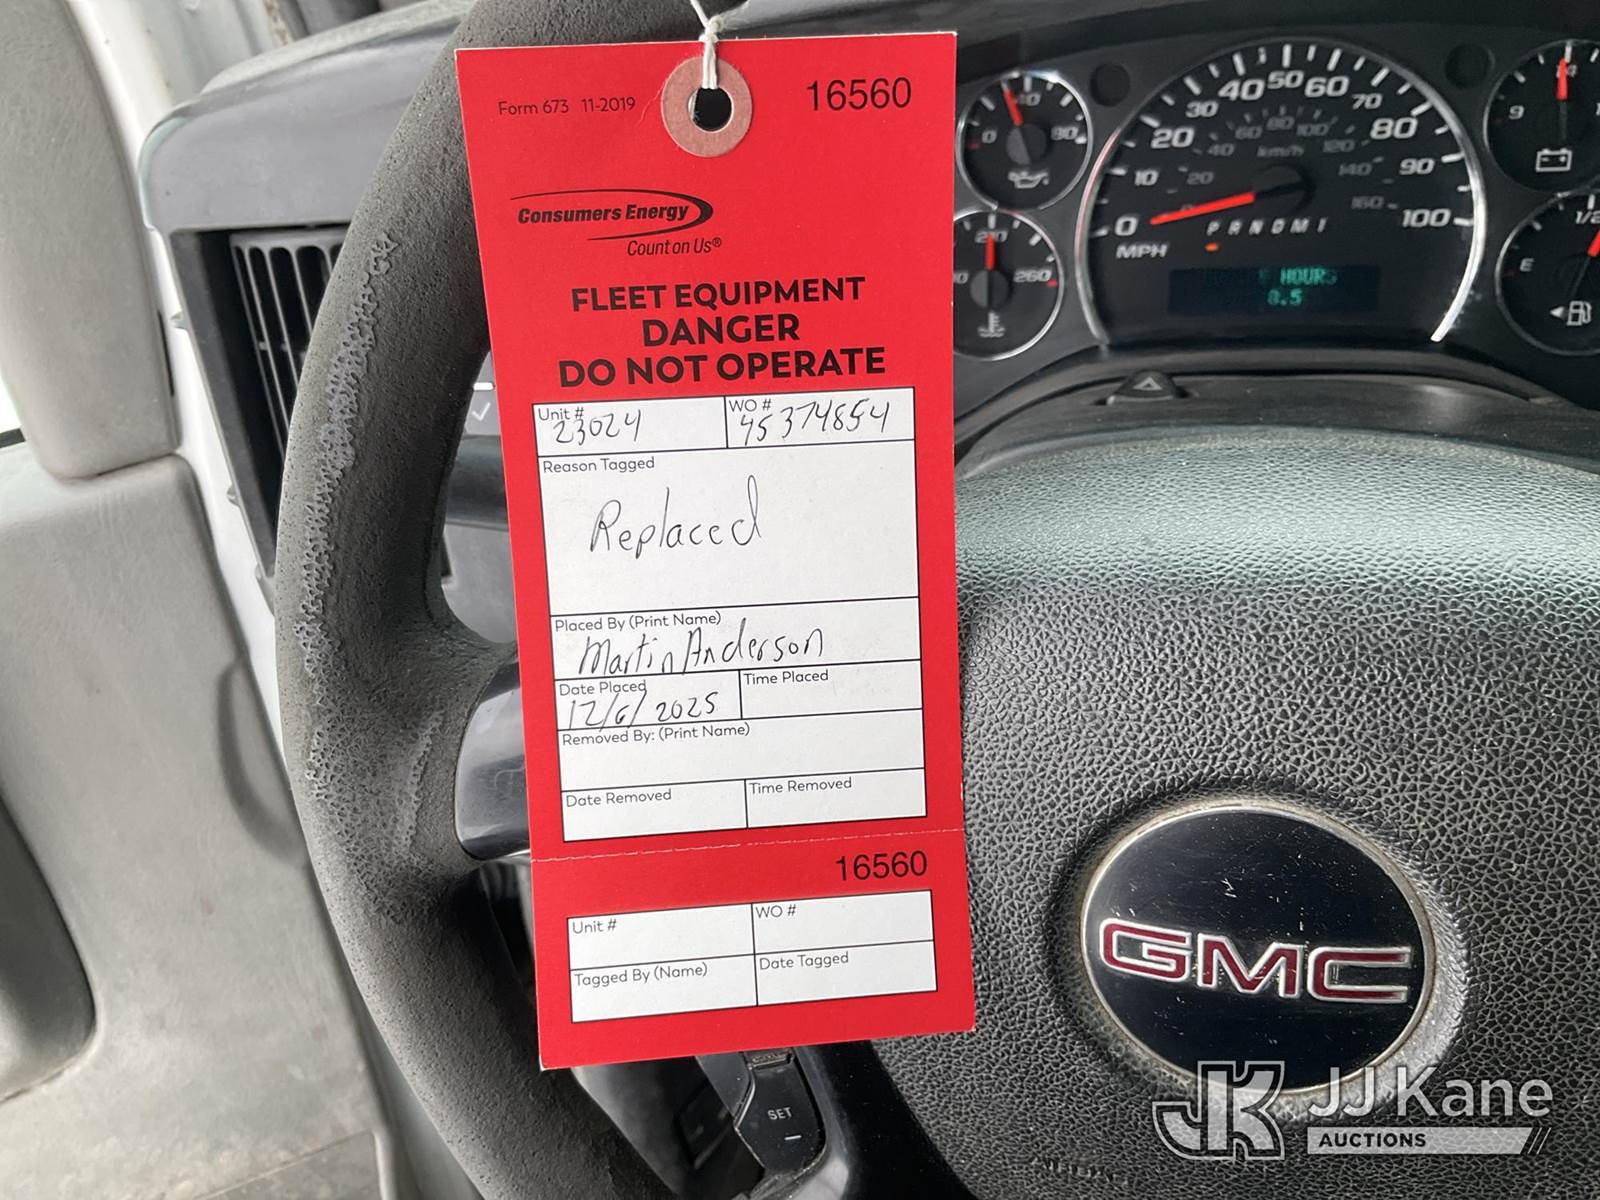 Form 673 11-2019
16560
Consumers Energy
Count on Us®
FLEET EQUIPMENT
DANGER
DO NOT OPERATE
Unit #
23024
WO #
45374854
Reason Tagged
Replaced
Placed By (Print Name)
Martin Anderson
Date Placed
12/6/2025
Time Placed
Removed By: (Print Name)
Date Removed
Time Removed
16560
Unit #
WO #
Tagged By (Name)
Date Tagged
0 40 80
210 260
0 10 20 30 40 50 60 70 80 90 100
20 40 60 80 100 120 140 160
km/h
MPH
P R N D M 1
HOURS
8.5
9
E 1/2
GMC
SET
AIRBAG
JK JJ Kane
AUCTIONS